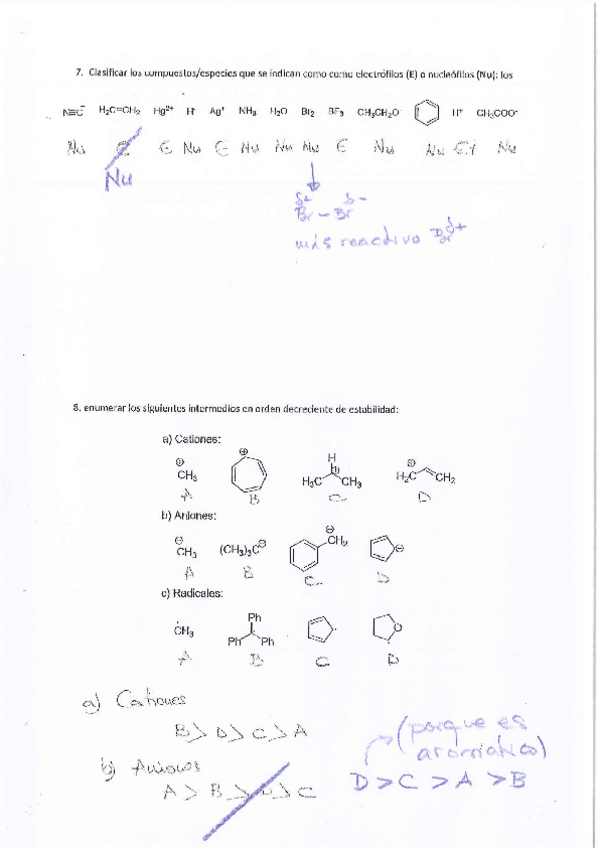 7. Clasificar los compuestos/especies que se indican como como electrófilos (E) o nucleófilos (Nu): los
N≡C⁻ H₂C=CH₂ Hg²⁺ H⁻ Ag⁺ NH₃ H₂O Br₂ BF₃ CH₃CH₂O⁻ H⁺ CH₃COO⁻
Nu E E Nu E Nu Nu Nu E Nu Nu Nu
Nu
δ+ δ-
Br - Br
más reactivo Br δ+
8. enumerar los siguientes intermedios en orden decreciente de estabilidad:
a) Cationes:
⊕ ⊕ H ⊕
CH₃ H₃C CH₃ H₂C CH₂
A B C D
b) Aniones:
⊖ ⊖ ⊖ ⊖
CH₃ (CH₃)₃C CH₂
A B C D
c) Radicales:
ĊH₃ Ph Ph Ph O
A B C D
a) Cationes
B > D > C > A
(porque es
aromático)
b) Aniones
D > C > A > B
A > B > D > C